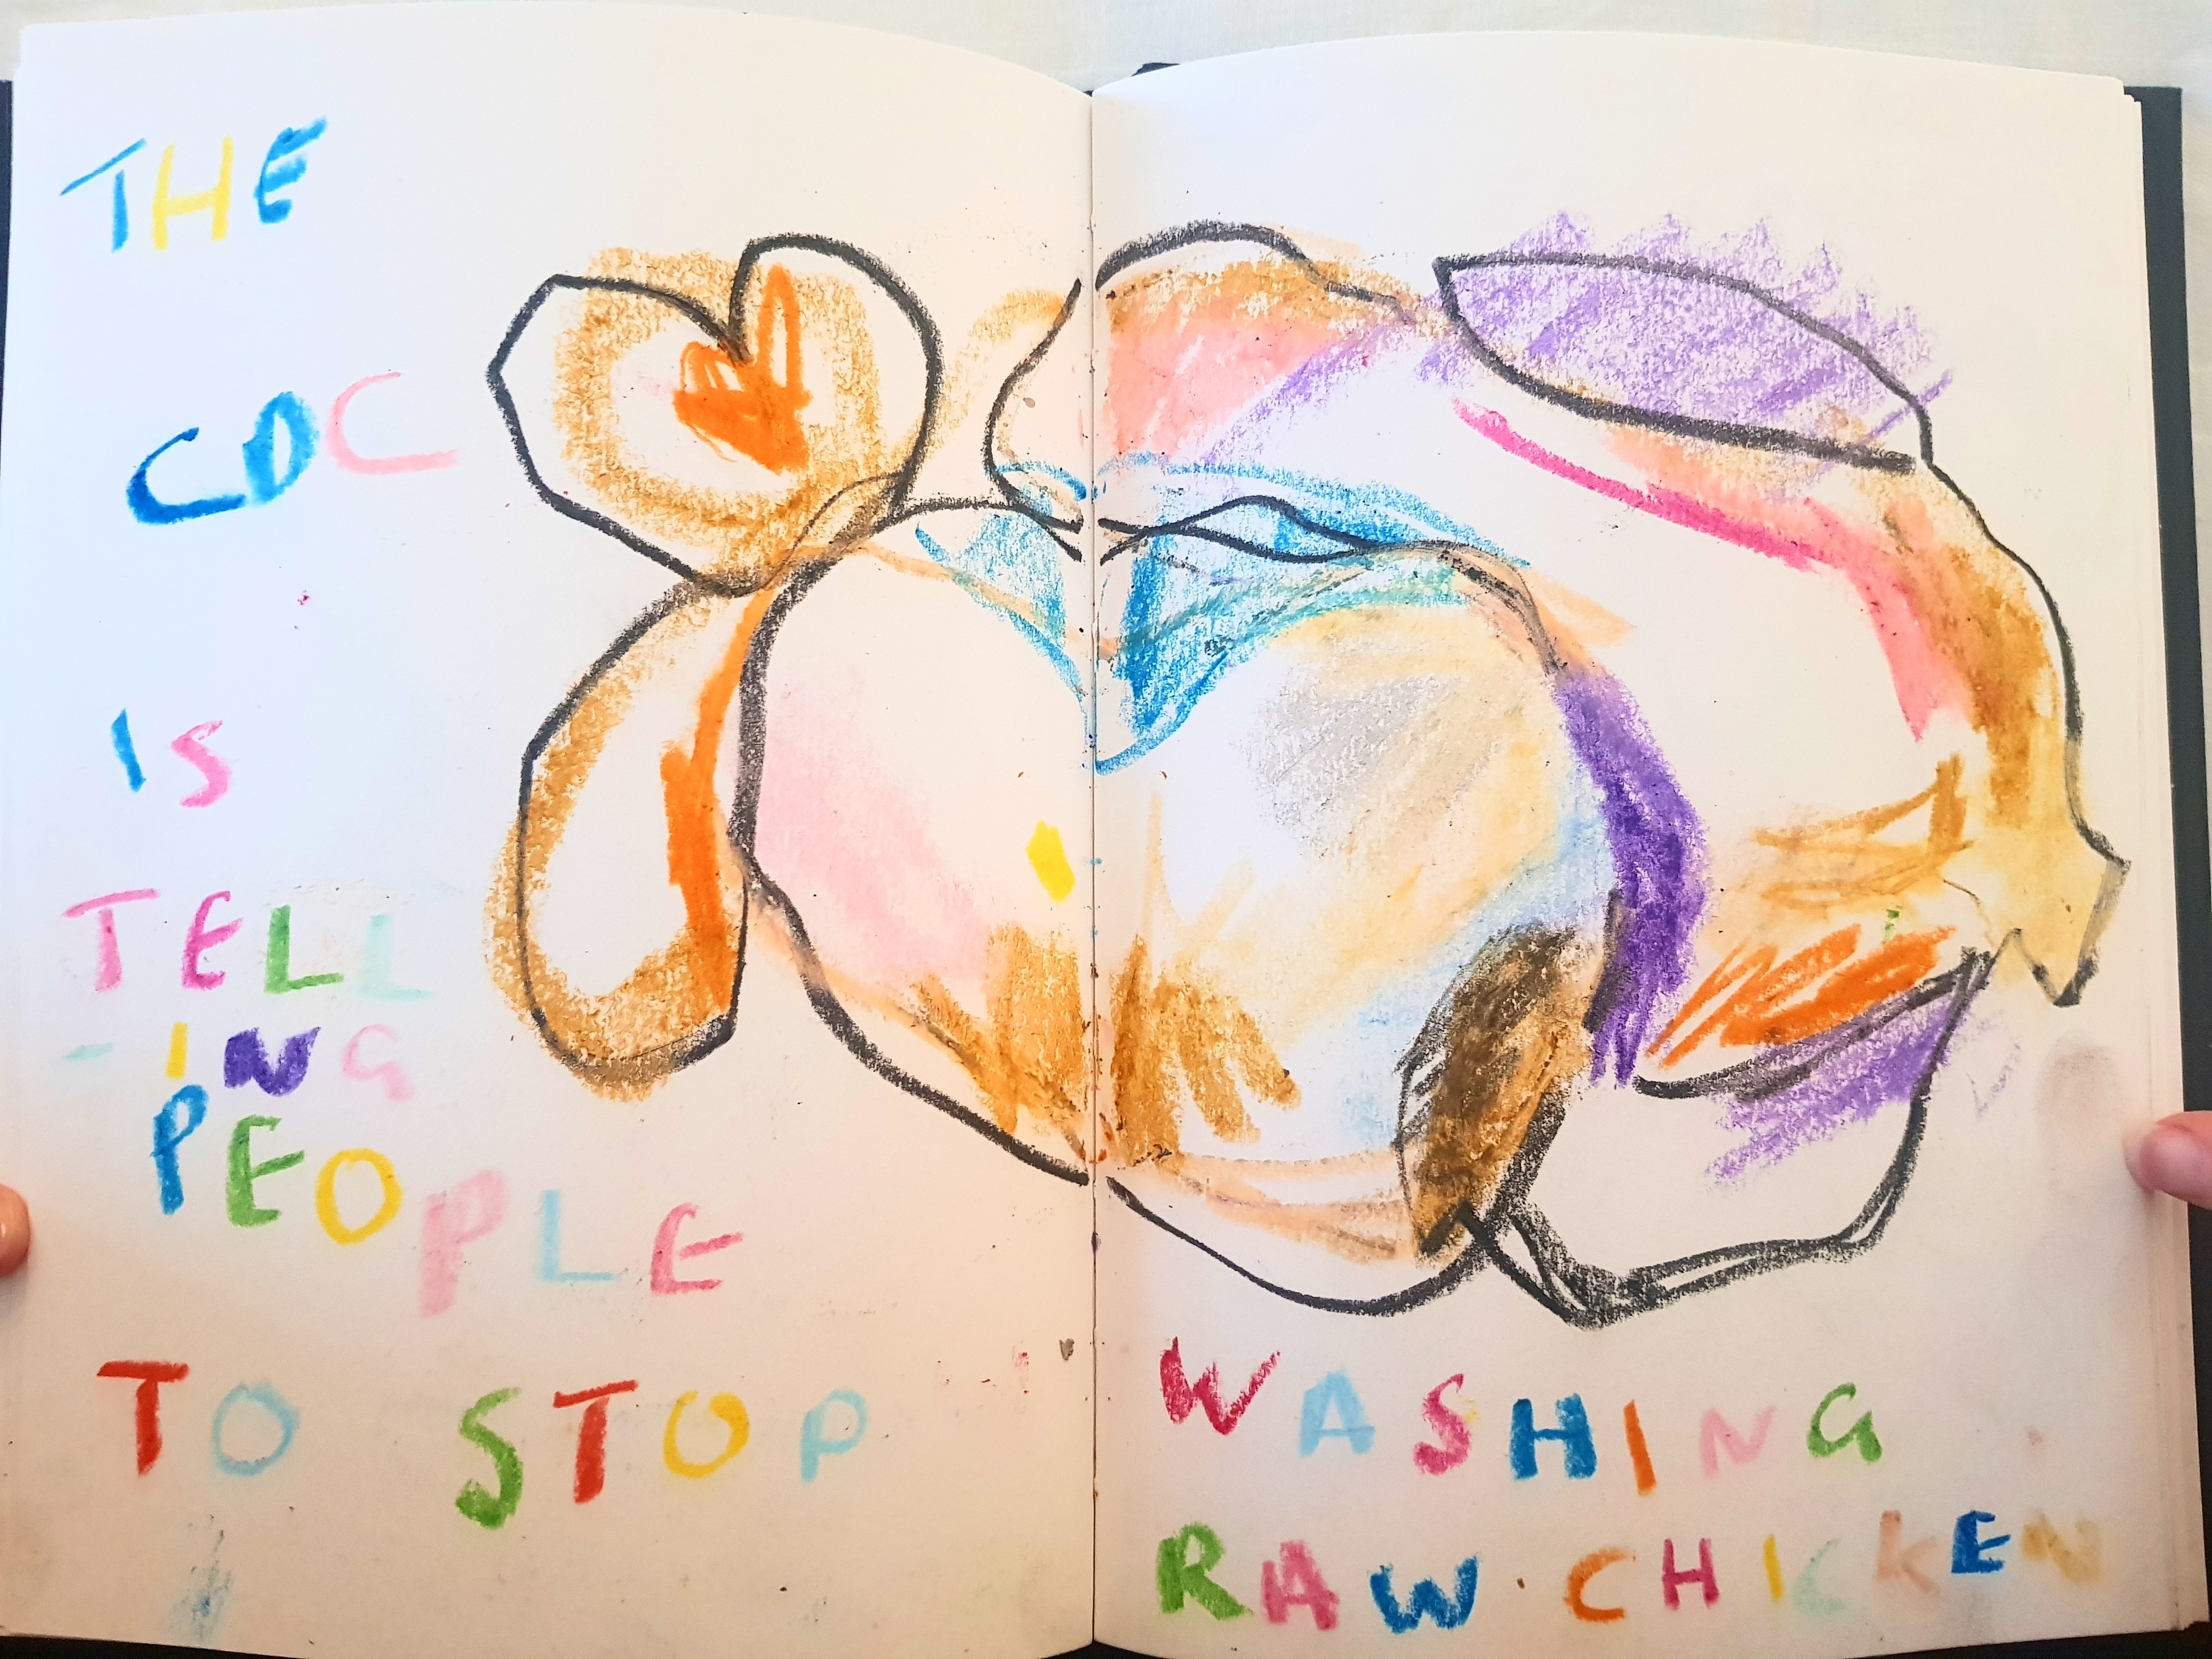 THE
CDC
IS
TELL
-ING
PEOPLE
TO STOP
WASHING
RAW·CHICKEN